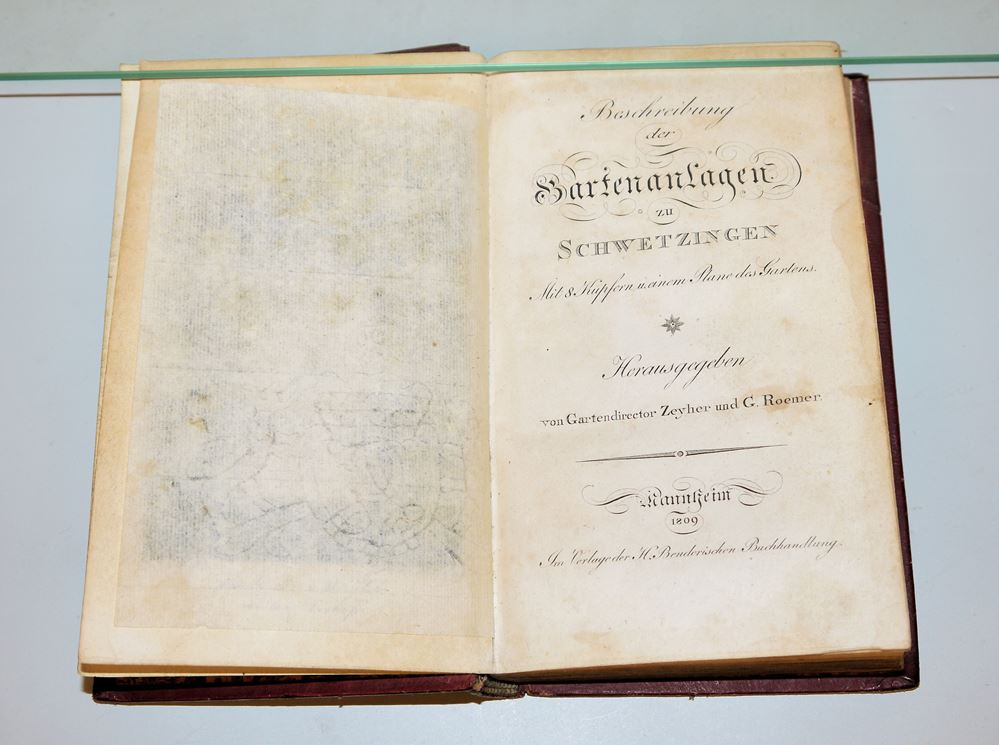 Beschreibung
der
Gartenanlagen
zu
SCHWETZINGEN
Mit 8 Kupfern u. einem Plane des Gartens.
Herausgegeben
von Gartendirector Zeyher und G. Roemer.
Mannheim
1809
Im Verlage der H. Benderischen Buchhandlung.